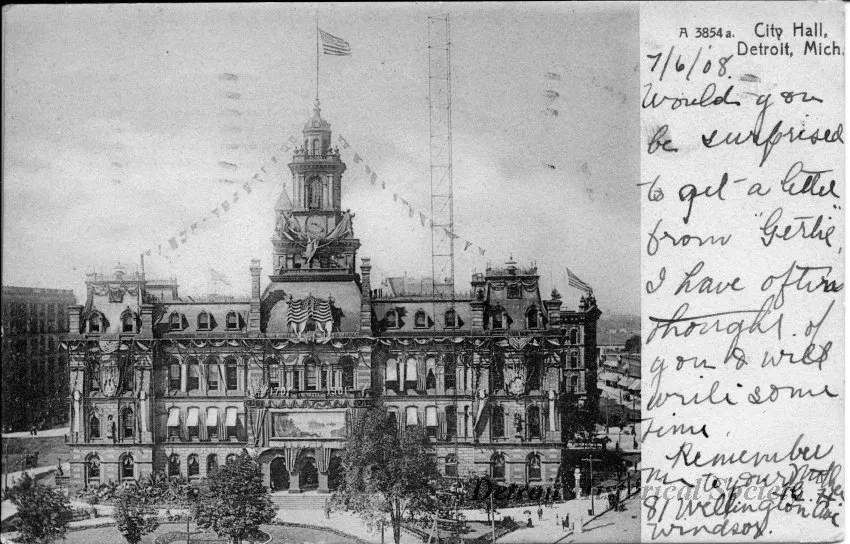 A 3854a. City Hall,
Detroit, Mich.
7/6/08.
Would you
be surprised
to get a letter
from "Gertie",
I have often
thought of
you & will
write some
time.
Remember
me to your Mother
81 Wellington Ave
Windsor.
Detroit Historical Society